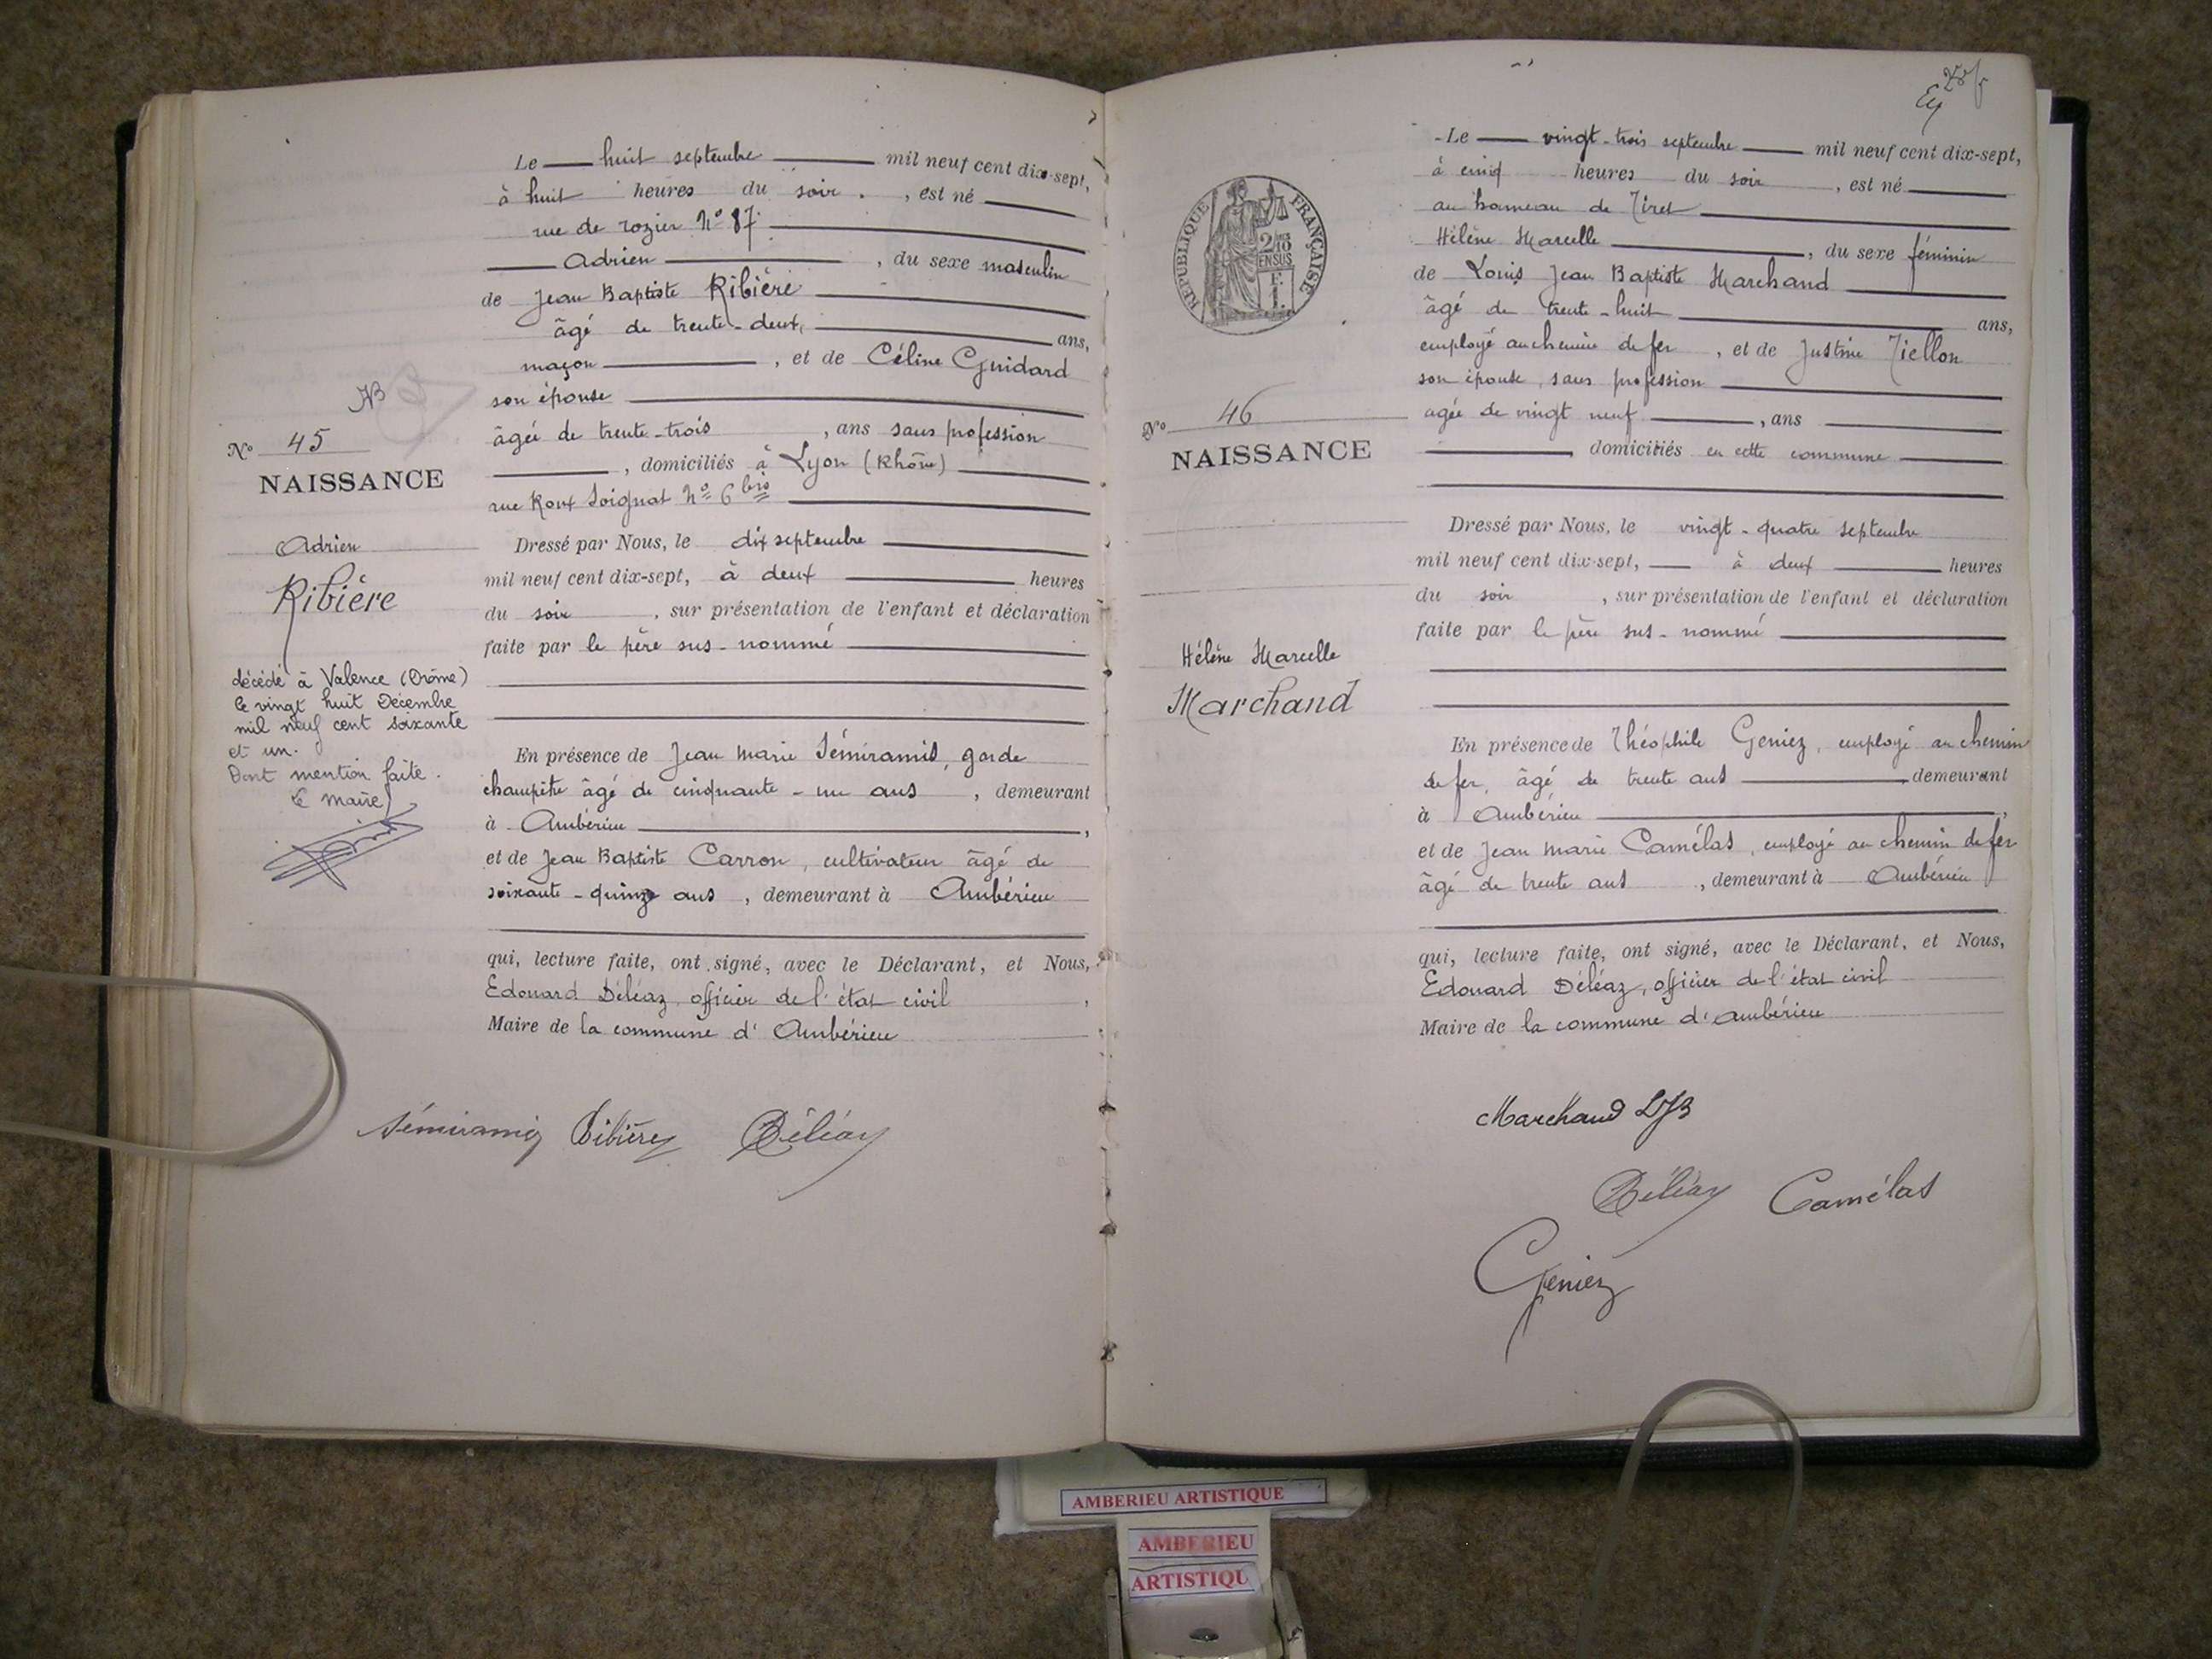 Le huit septembre mil neuf cent dix-sept,
à huit heures du soir, est né
rue de rozier N° 87
Adrien, du sexe masculin
de Jean Baptiste Ribière
âgé de trente-deux ans,
maçon, et de Céline Guidard
son épouse
âgée de trente-trois, ans sans profession
, domiciliés à Lyon (Rhône)
rue Roux Soignat N° 6 bis
Dressé par Nous, le dix septembre
mil neuf cent dix-sept, à deux heures
du soir, sur présentation de l'enfant et déclaration
faite par le père sus-nommé
En présence de Jean Marie Sémiramis, garde
champêtre âgé de cinquante-un ans, demeurant
à Ambérieu,
et de Jean Baptiste Carron, cultivateur âgé de
soixante-quinze ans, demeurant à Ambérieu
qui, lecture faite, ont signé, avec le Déclarant, et Nous,
Edouard Déléaz, officier de l'état civil,
Maire de la commune d'Ambérieu
N° 45
NAISSANCE
Adrien
Ribière
décédé à Valence (Drôme)
le vingt huit Décembre
mil neuf cent soixante
et un.
Dont mention faite.
Le maire
Sémiramis Ribière Déléaz
Le vingt-trois septembre mil neuf cent dix-sept,
à cinq heures du soir, est né
au hameau de Tiret
Hélène Marcelle, du sexe féminin
de Louis Jean Baptiste Marchand
âgé de trente-huit ans,
employé au chemin de fer, et de Justine Tiellon
son épouse, sans profession
agée de vingt neuf, ans
domiciliés en cette commune
Dressé par Nous, le vingt-quatre septembre
mil neuf cent dix-sept, à deux heures
du soir, sur présentation de l'enfant et déclaration
faite par le père sus-nommé
En présence de Théophile Geniez, employé au chemin
de fer, âgé de trente ans demeurant
à Ambérieu,
et de Jean Marie Camélas, employé au chemin de fer
âgé de trente ans, demeurant à Ambérieu
qui, lecture faite, ont signé, avec le Déclarant, et Nous,
Edouard Déléaz, officier de l'état civil
Maire de la commune d'Ambérieu
RÉPUBLIQUE FRANÇAISE
2/10
EN SUS
N° 46
NAISSANCE
Hélène Marcelle
Marchand
Marchand LJB
Déléaz Camélas
Geniez
AMBERIEU ARTISTIQUE
AMBERIEU
ARTISTIQU